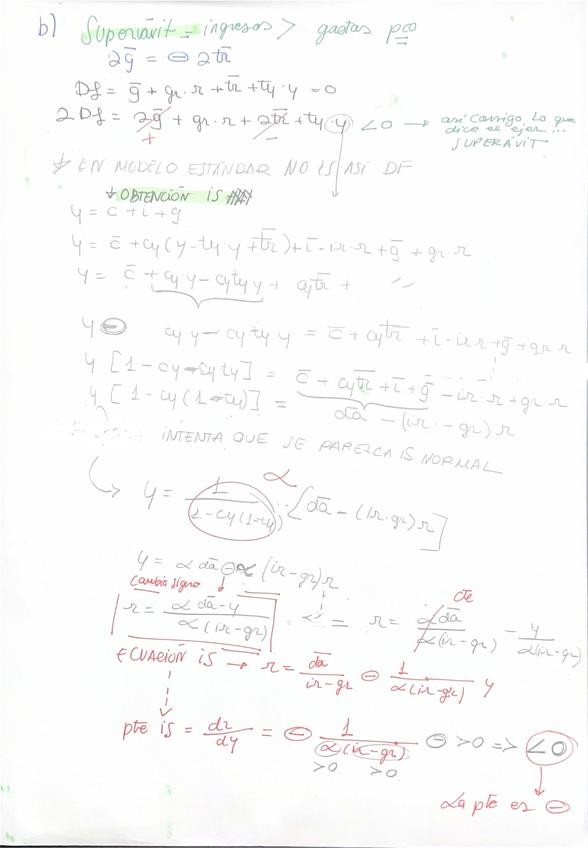 b) Superávit = ingresos > gastos pco
2ḡ = ⊖ 2t̄r̄
Df = ḡ + gr·r + t̄r̄ + ty·y = 0
2 Df = 2ḡ + gr·r + 2t̄r̄ + ty·y < 0 → así corrijo lo que
+ − dice el ejer...
SUPERÁVIT
* EN MODELO ESTÁNDAR NO ES ASI DF
* OBTENCIÓN IS
y = c + i + g
y = c̄ + cy(y - ty y + t̄r̄) + ī - ir·r + ḡ + gr r
y = c̄ + cy y - cyty y + cyt̄r̄ + 〃
y ⊖ cy y - cy ty y = c̄ + cyt̄r̄ + ī - ir r + ḡ + gr r
y [1 - cy - cy ty] = c̄ + cyt̄r̄ + ī + ḡ - ir·r + gr r
y [1 - cy(1 - ty)] = d̄ā - (ir - gr) r
INTENTA QUE SE PAREZCA IS NORMAL
α
↪ y = 1 / (1 - cy(1-ty)) · [d̄ā - (ir - gr) r]
y = α d̄ā ⊖ α (ir - gr) r
cambio signo ↓
r = (α d̄ā - y) / (α (ir - gr)) = r = α d̄ā / (α (ir - gr)) - y / (α (ir - gr))
cte
ECUACIÓN IS → r = d̄ā / (ir - gr) ⊖ 1 / (α (ir - gr)) y
pte IS = dr/dy = ⊖ 1 / (α (ir - gr)) ⊖ > 0 => < 0
>0 >0
La pte es ⊖